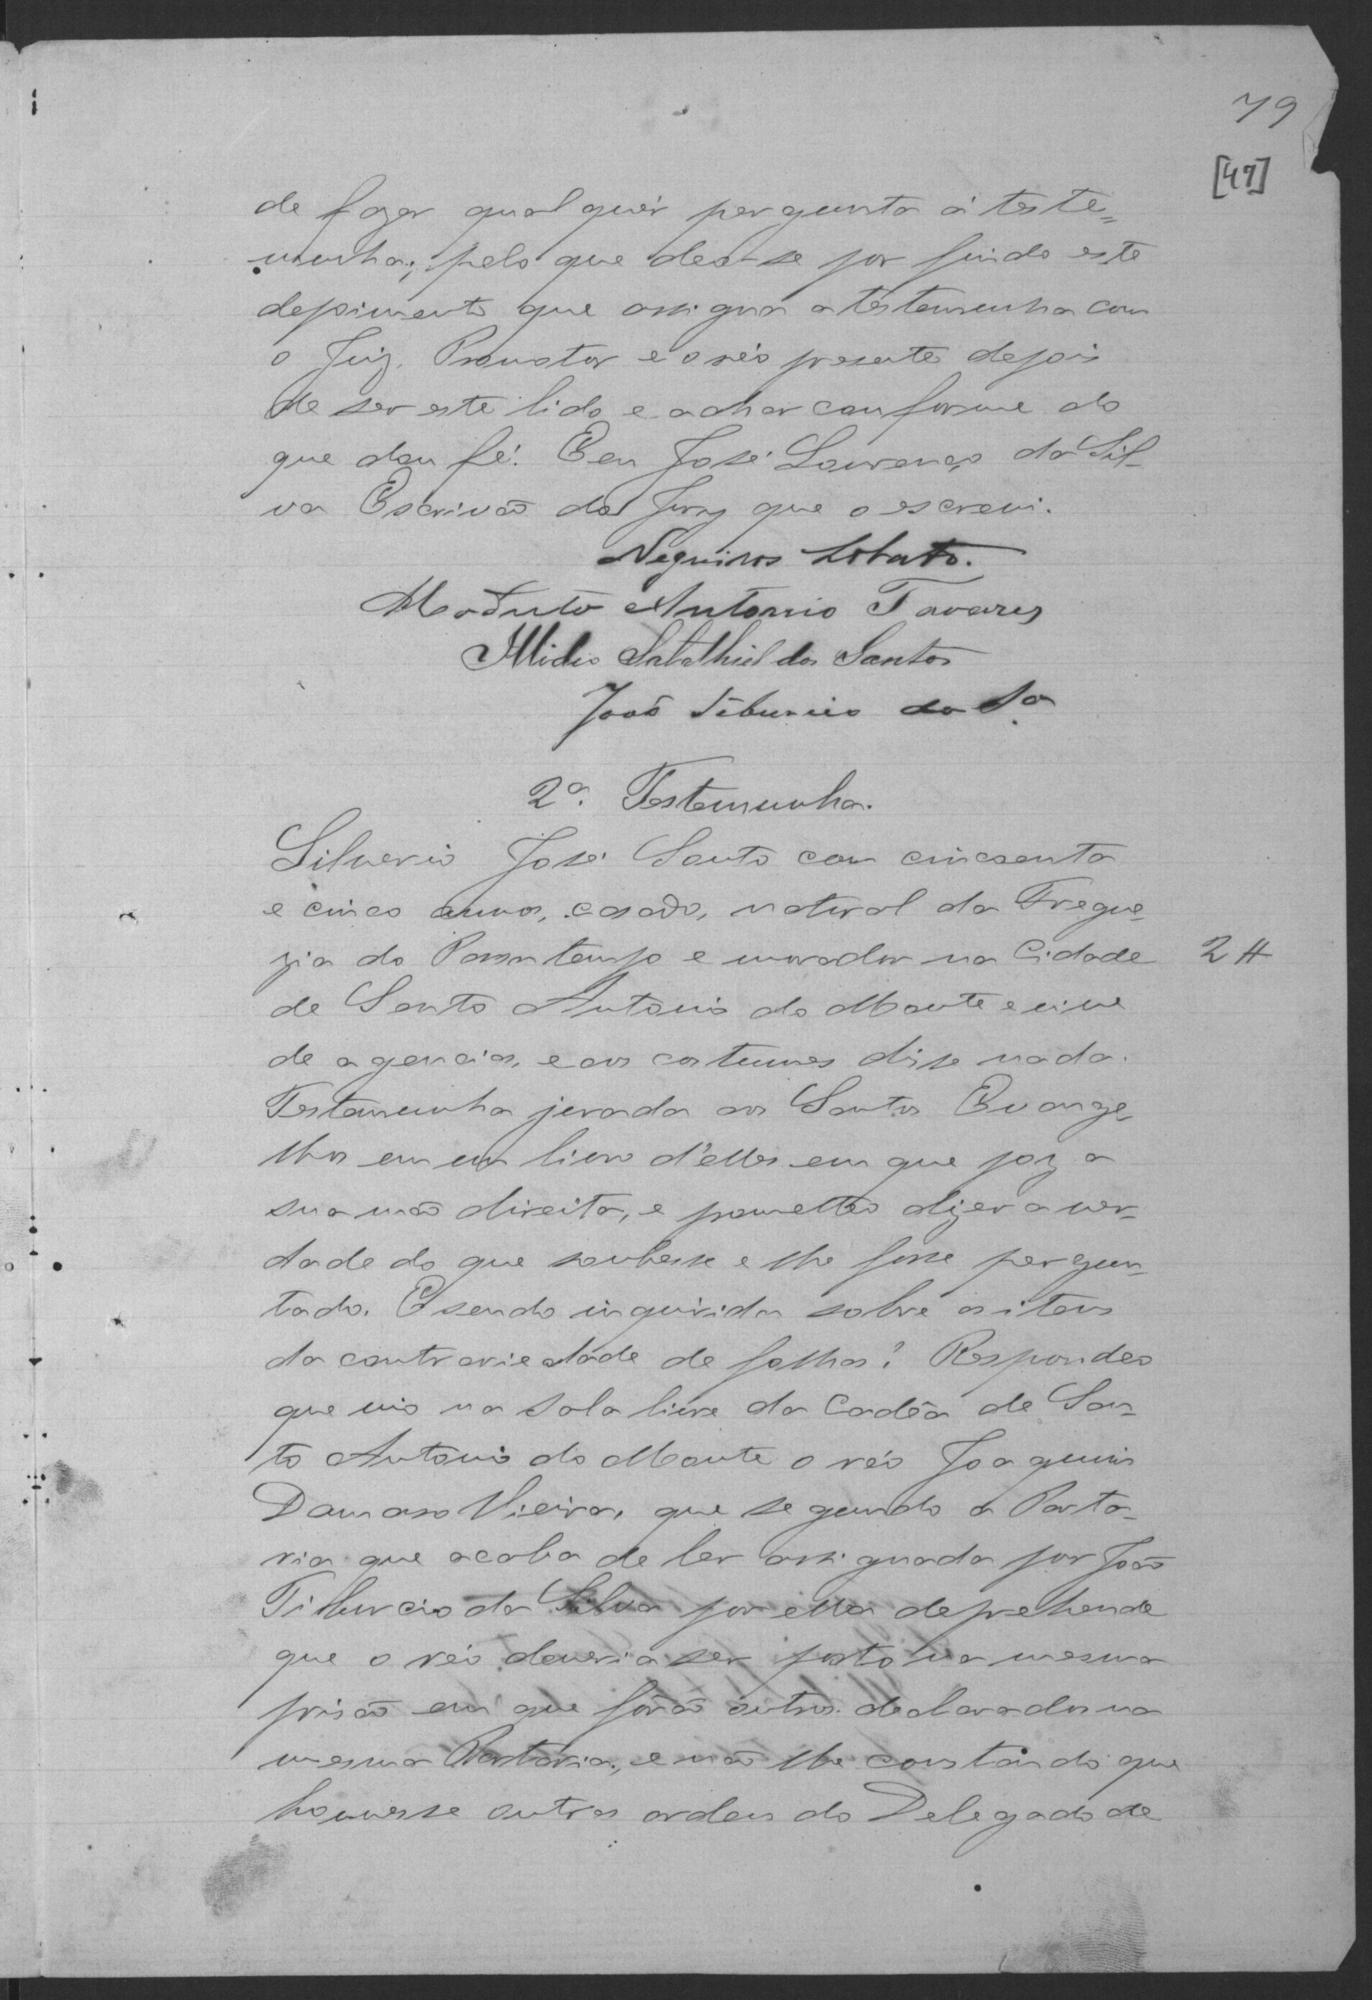 79
[49]
de fazer qualquér pergunta á teste=
munha; pelo que deo-se por findo este
depoimento que assigna a testemunha com
o Juiz, Promotor e o réo presente depois
de ser este lido e achar conforme do
que dou fé. Eeu José Lourenço da Sil-
va Escrivão do Jury que o escrevi.
Negreiros Lobato.
Antonio Tavares
Illidio Salathiel dos Santos
João Tiburcio da Sª
2ª. Testemunha.
Silverio José Souto com cincoenta
e cinco annos, casado, natural da Fregue-
zia do Passatempo e morador na Cidade
2 #
de Santo Antonio do Monte e vive
de agencias, e aos costumes disse nada.
Testemunha jurada aos Santos Evange-
lhos em um livro d'elles em que poz a
sua mão direita, e prometteo dizer a ver-
dade do que soubesse e lhe fosse pergun-
tado. E sendo inquirida sobre os itens
da contrariedade de folhas? Respondeo
que vio na sala livre da Cadêa de San-
to Antonio do Monte o réo Joaquim
Damaso Vieira, que segundo a Porta-
ria que acaba de ler assignada por João
Tiburcio da Silva por ella deprehende
que o réo deveria ser posto na mesma
prisão em que fôrão outros declarados na
mesma Portaria, e não lhe constando que
houvesse outras ordens do Delegado de